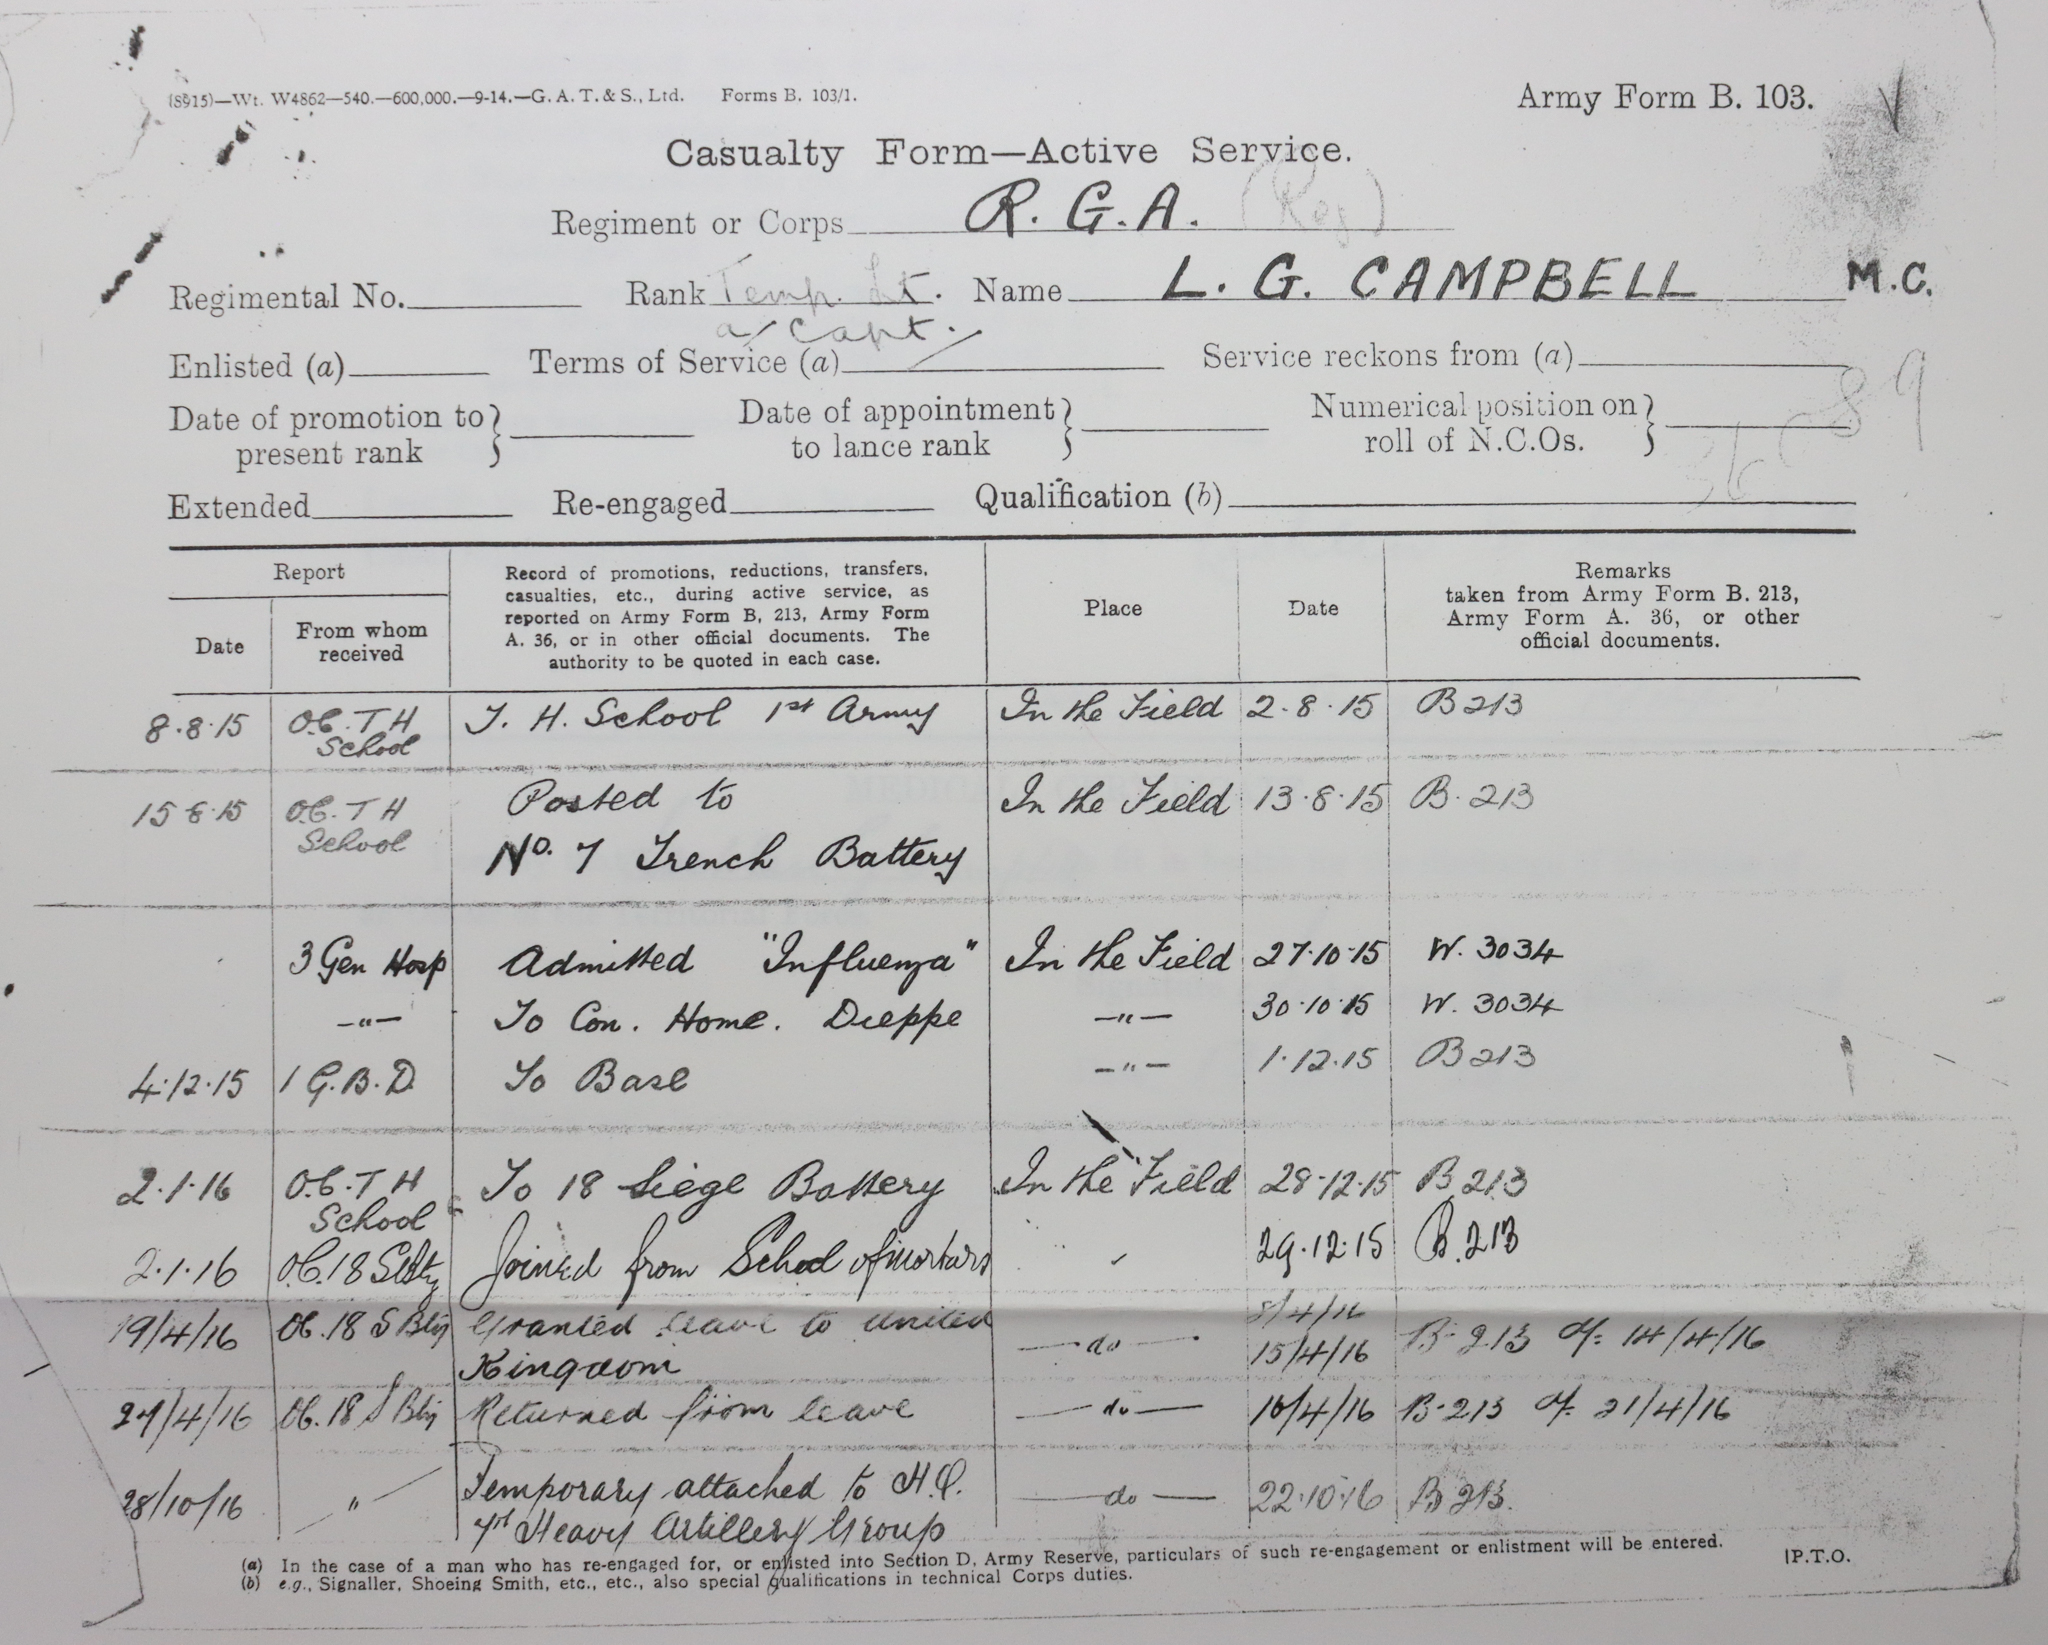 (8915)—Wt. W4862—540.—600,000.—9-14.—G. A. T. & S., Ltd. Forms B. 103/1.
Army Form B. 103.
Casualty Form—Active Service.
Regiment or Corps R. G. A. (Reg)
Regimental No. Rank Temp. Lt. Name L. G. CAMPBELL M.C.
a/Capt.
Enlisted (a) Terms of Service (a) Service reckons from (a)
89
Date of promotion to present rank } Date of appointment to lance rank } Numerical position on roll of N.C.Os. }
Extended Re-engaged Qualification (b)
Report
Date
From whom received
Record of promotions, reductions, transfers,
casualties, etc., during active service, as
reported on Army Form B, 213, Army Form
A. 36, or in other official documents. The
authority to be quoted in each case.
Place
Date
Remarks
taken from Army Form B. 213,
Army Form A. 36, or other
official documents.
8.8.15 O.C. T H T. H. School 1st Army In the Field 2.8.15 B 213
School
15 8 15 O.C. T H Posted to In the Field 13.8.15 B. 213
School No. 7 Trench Battery
3 Gen Hosp Admitted "Influenza" In the Field 27.10.15 W. 3034
—"— To Con. Home. Dieppe —"— 30.10.15 W. 3034
4.12.15 1 G.B.D. To Base —"— 1.12.15 B 213
2.1.16 O.C. T H To 18 Siege Battery In the Field 28.12.15 B 213
School
2.1.16 O.C. 18 S Bty Joined from School of Mortars 29.12.15 B. 213
19/4/16 OC. 18 S Bty Granted leave to United —do— 8/4/16
Kingdom 15/4/16 B-213 of 14/4/16
27/4/16 OC. 18 S Bty Returned from leave —do— 16/4/16 B-213 of 21/4/16
28/10/16 " Temporary attached to H.Q. —do— 22.10.16 B 213.
Heavy Artillery Group
(a) In the case of a man who has re-engaged for, or enlisted into Section D, Army Reserve, particulars of such re-engagement or enlistment will be entered.
(b) e.g., Signaller, Shoeing Smith, etc., etc., also special qualifications in technical Corps duties.
[P.T.O.